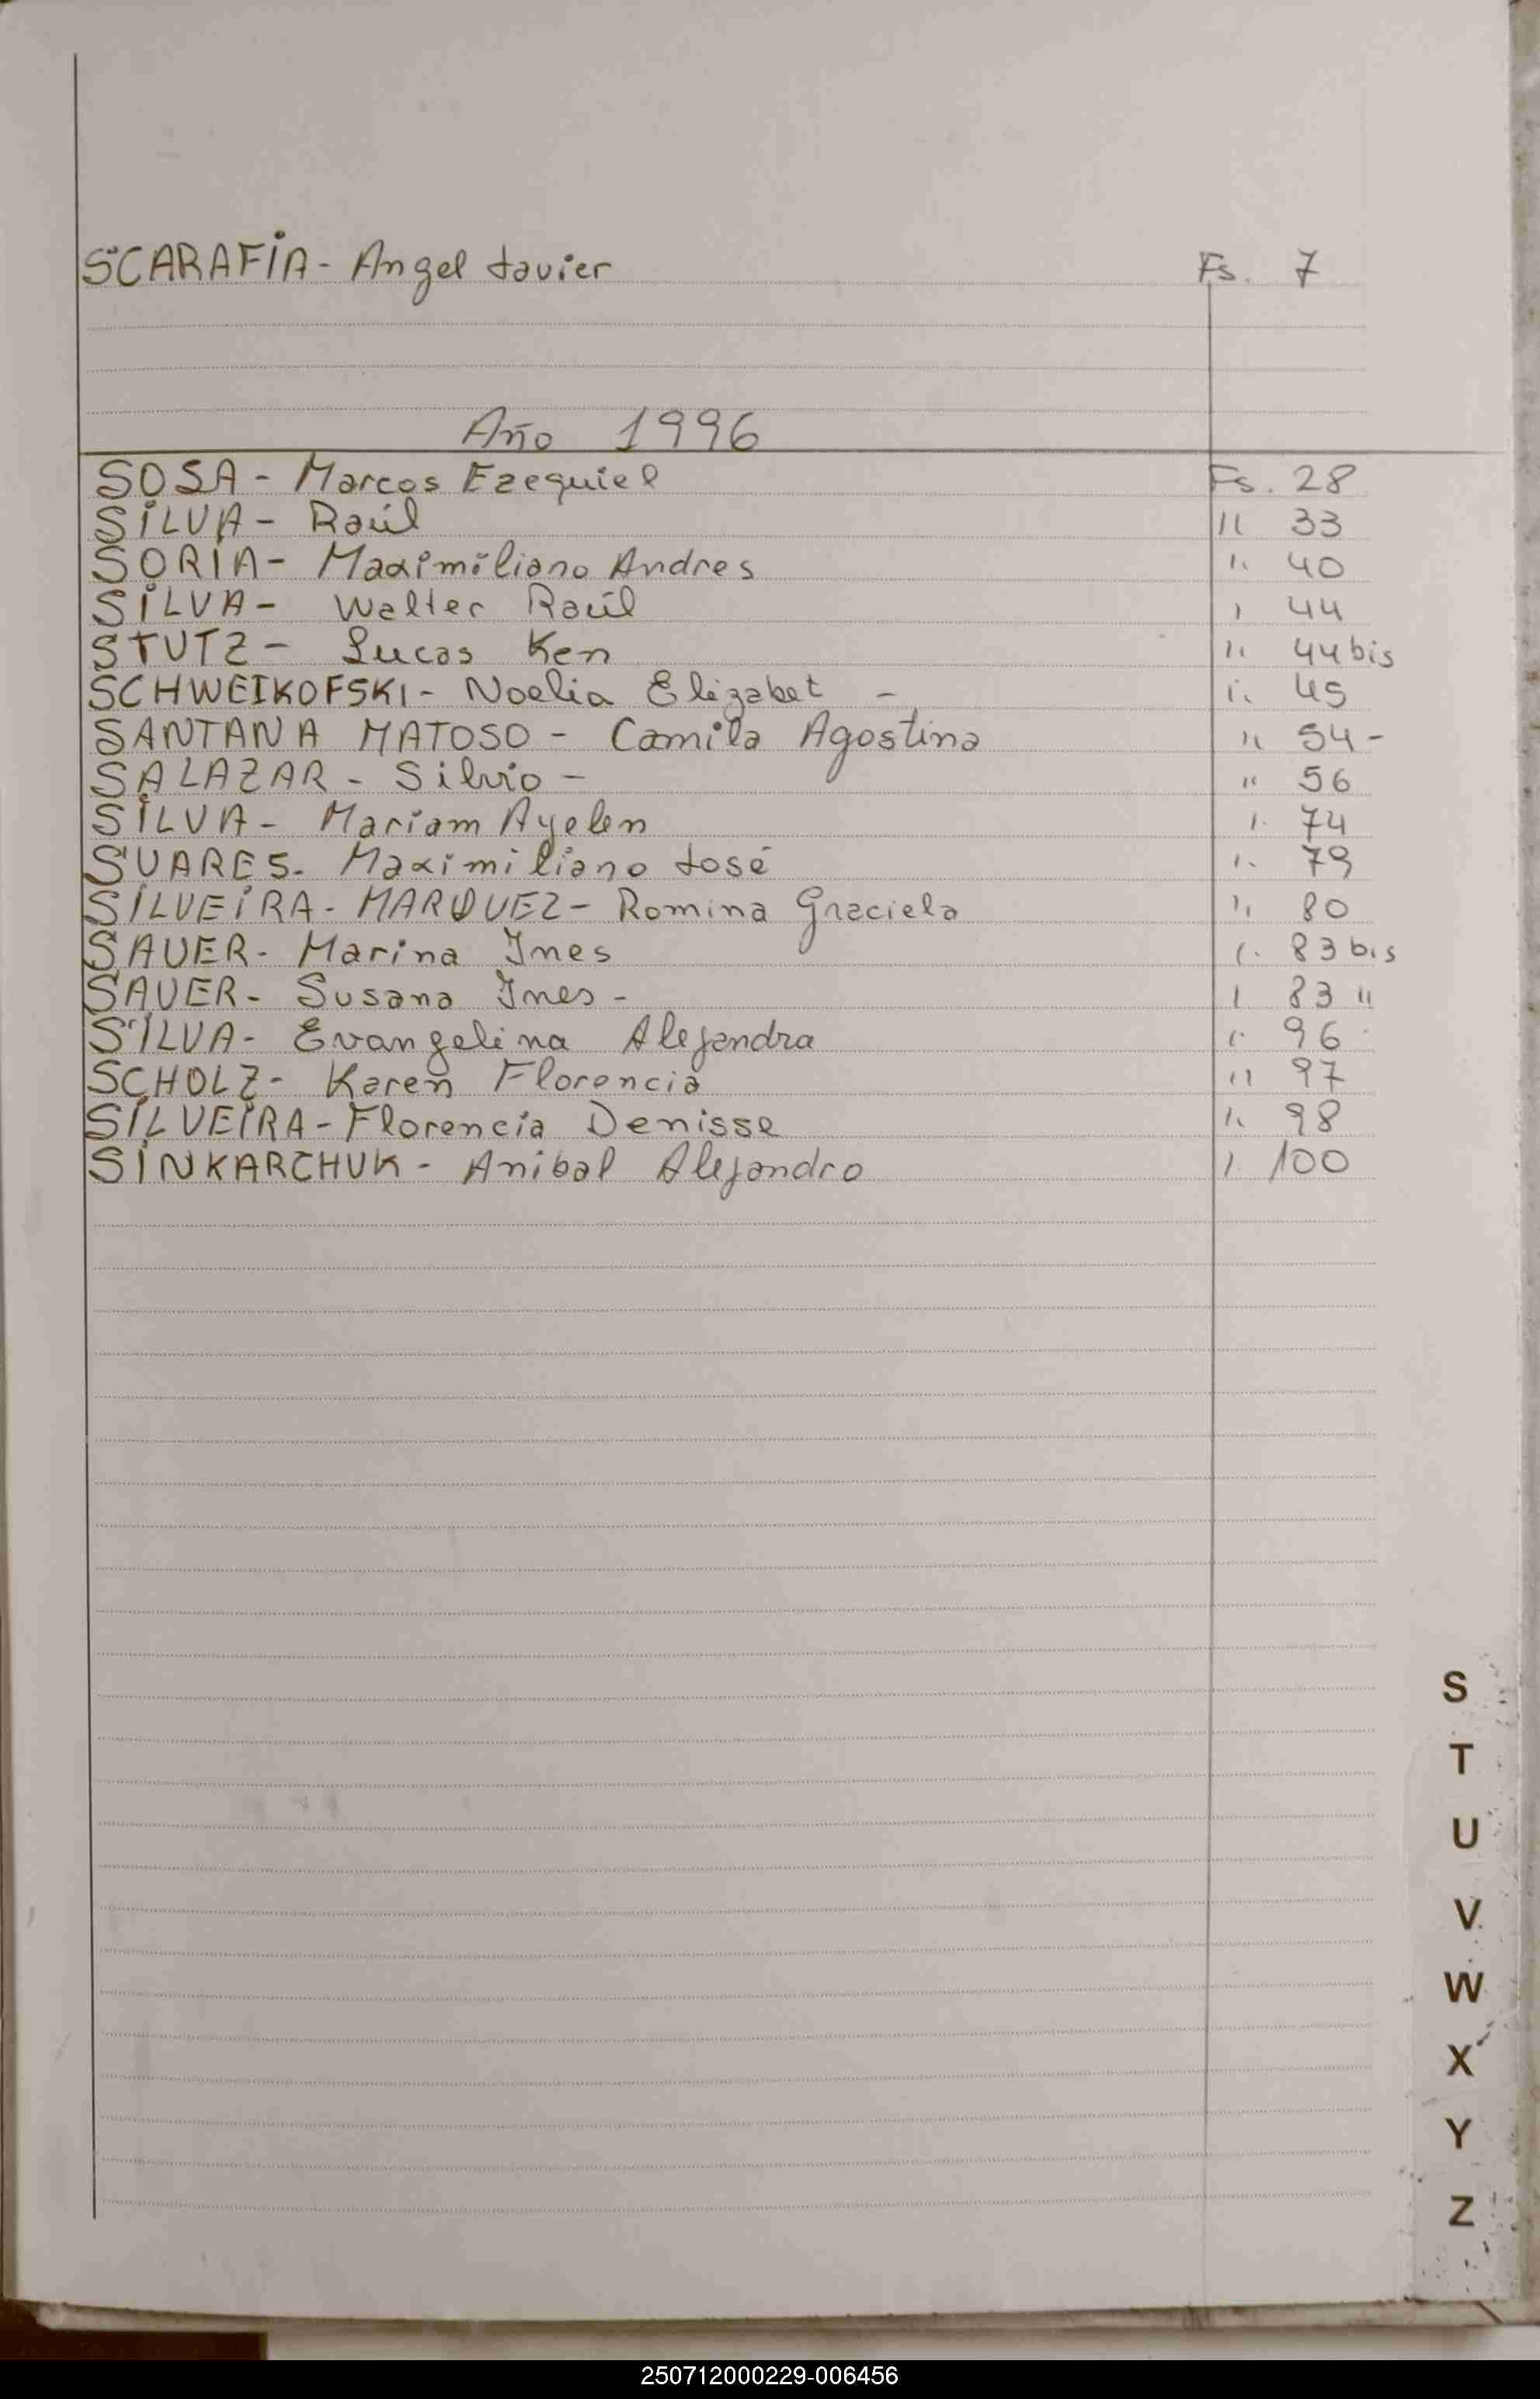 SCARAFÍA - Angel Javier Fs. 7
Año 1996
SOSA - Marcos Ezequiel Fs. 28
SILVA - Raúl " 33
SORIA - Maximiliano Andres " 40
SILVA - Walter Raúl " 44
STUTZ - Lucas Ken " 44 bis
SCHWEIKOFSKI - Noelia Elizabet - " 45
SANTANA MATOSO - Camila Agostina " 54 -
SALAZAR - Silvio - " 56
SILVA - Mariam Ayelen " 74
SUARES - Maximiliano José " 79
SILVEIRA - MARQUEZ - Romina Graciela " 80
SAUER - Marina Ines " 83 bis
SAUER - Susana Ines - " 83 "
SILVA - Evangelina Alejandra " 96
SCHOLZ - Karen Florencia " 97
SILVEIRA - Florencia Denisse " 98
SINKARCHUK - Anibal Alejandro " 100
S
T
U
V
W
X
Y
Z
250712000229-006456